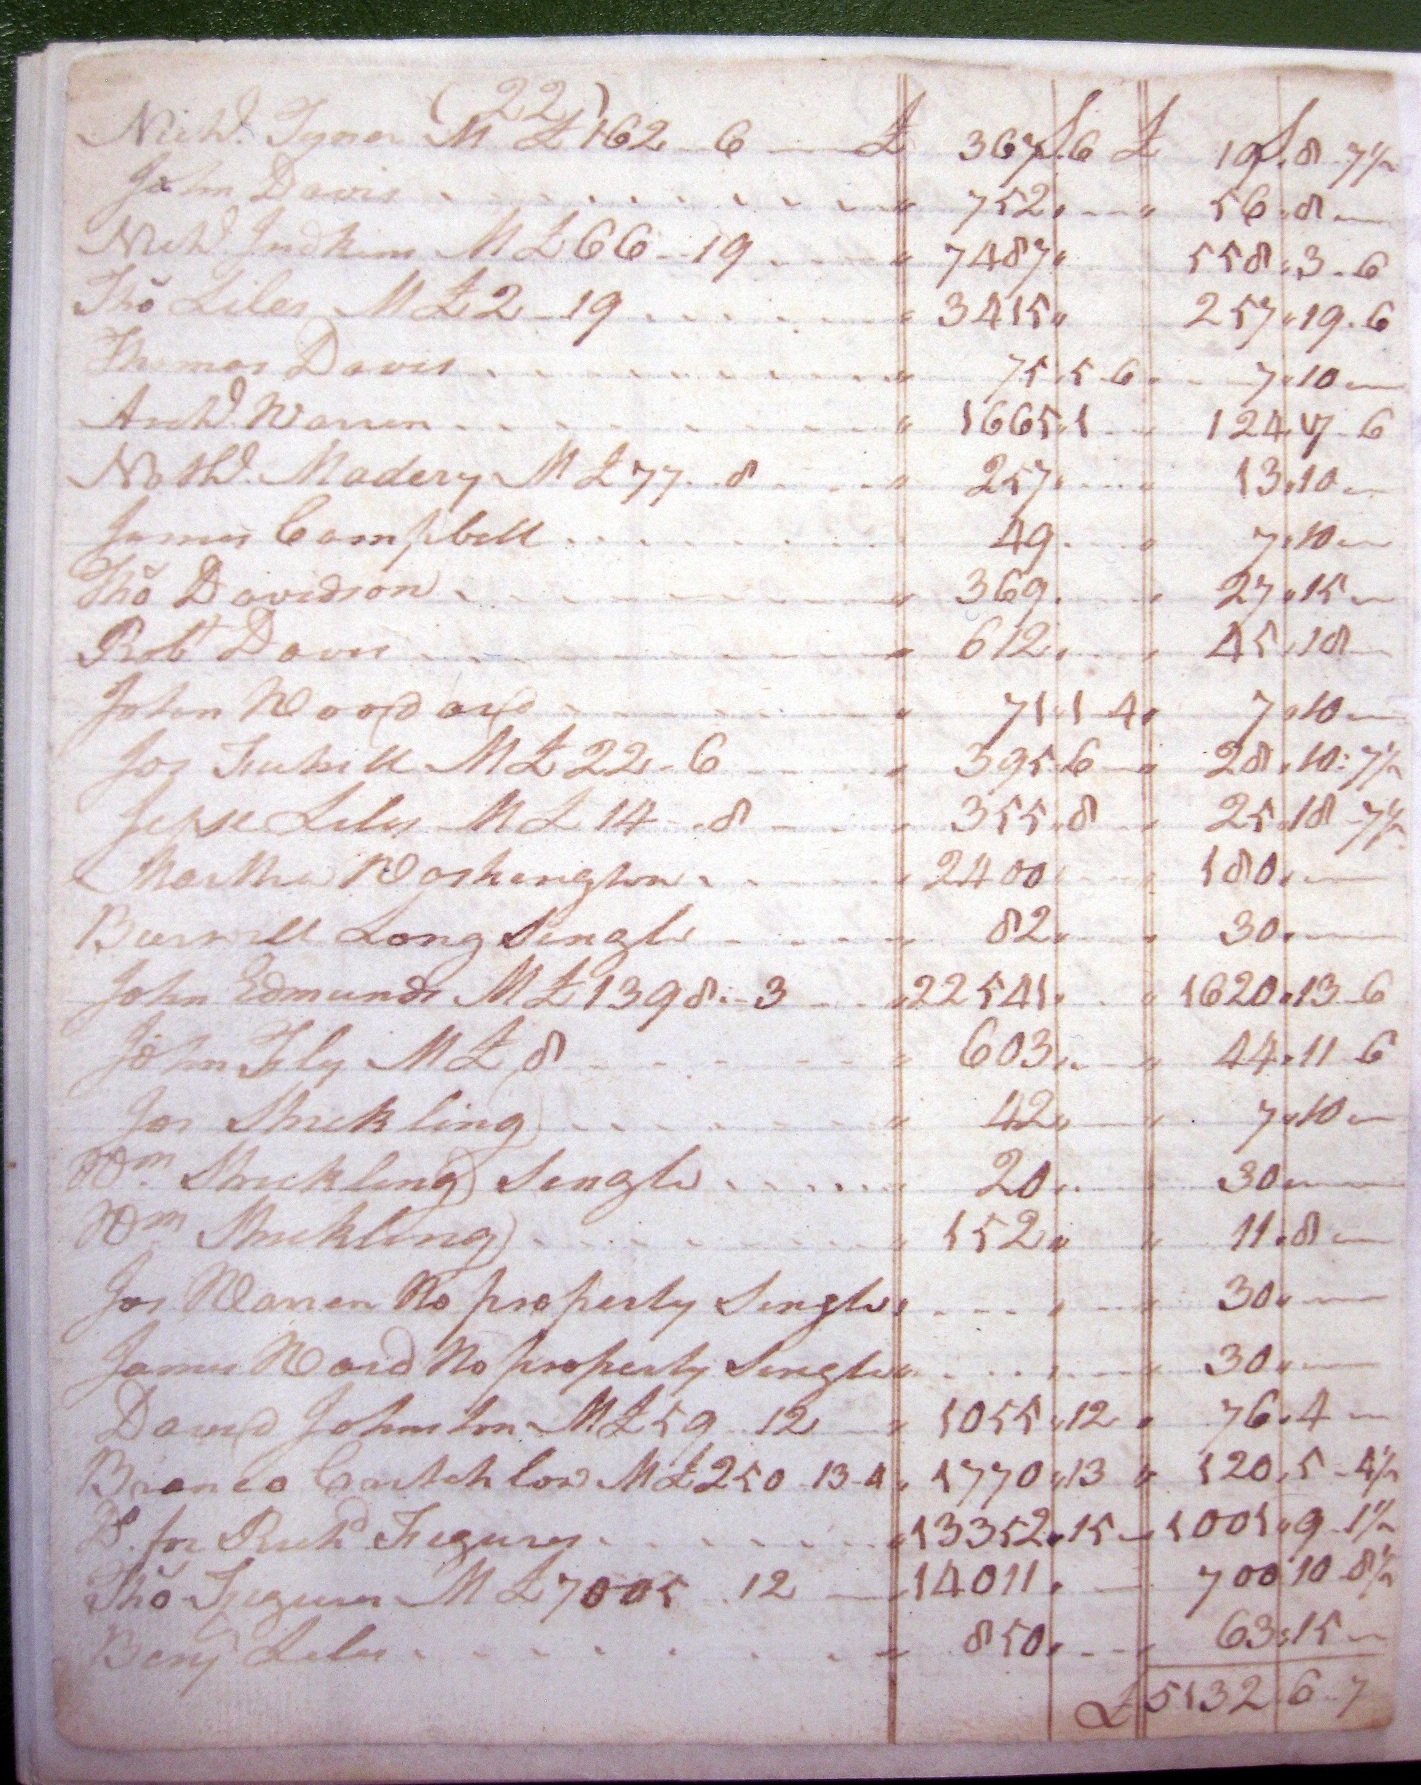 (22)
Nichd. Tyner M £162 6 £ 367 S 6 £ 19 S 8 7½
John Davis 752 56 8
Nichd. Judkins M £66 19 7487 558 3 6
Thõ Liles M £2 19 3415 257 19 6
Thomas Davis 75 5 6 7 10
Archd. Warren 1665 1 124 17 6
Nathd. Madery M £77 8 257 13 10
James Campbell 49 7 10
Thõ Davidson 369 27 15
Robt Davis 612 45 18
John Woodard 71 1 4 7 10
Jos M £22 6 395 6 28 10 7½
Jesse Liles M £14 8 355 8 25 18 7½
Martha Washington 2400 180
Burwell Long Single 82 30
John Edmunds M £1398 3 22541 1620 13 6
John Ily M £8 603 44 11 6
Jos Strickling 42 7 10
Wm. Strickling Single 20 30
Wm Strickling 152 11 8
Jos Warren No property Single 30
James Ward No property Single 30
David Johnston M £59 12 1055 12 76 4
Critchlow M £250 13 4 1770 13 120 5 4½
D. for Richd Figures 13352 15 1001 9 1½
Thõ Figures M £7005 12 14011 700 10 8½
Benj Liles 850 63 15
£ 5132 6 7